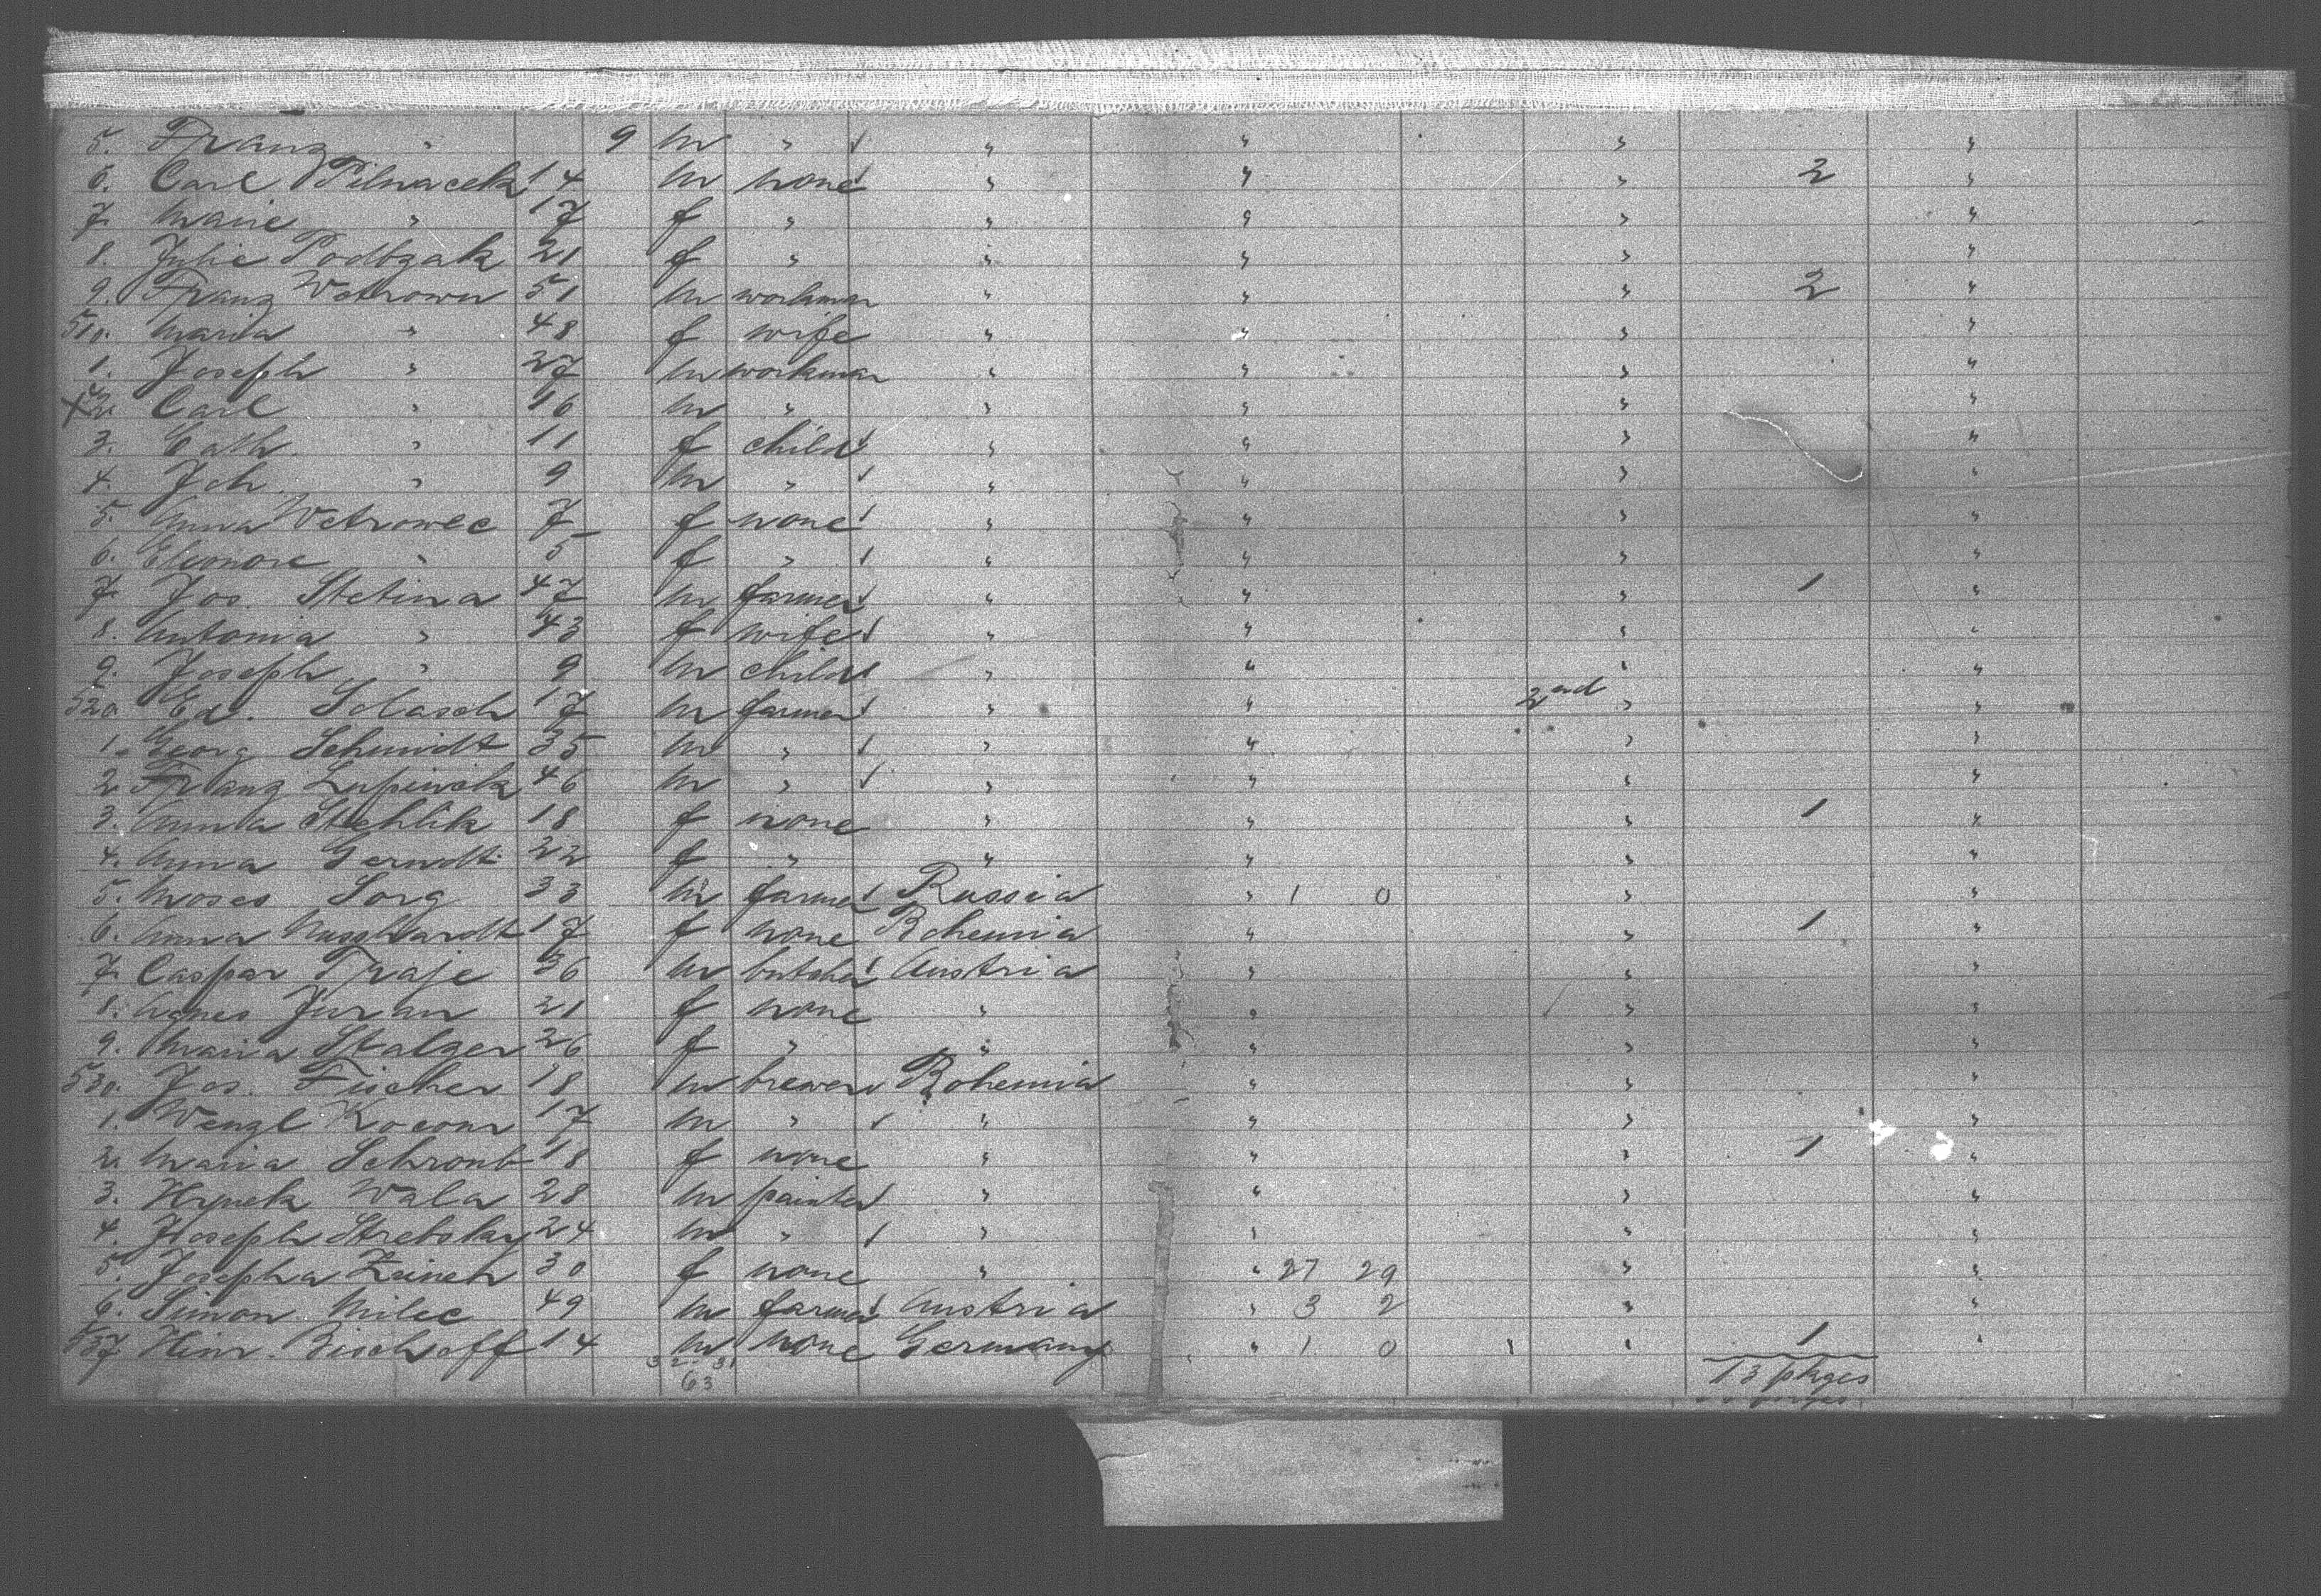 5. Franz " 9 m " " " " "
6. Carl Pilnacek 14 m none " " " 2 "
7. Marie " 17 f " " " " "
8. Julie Podbzak 21 f " " " " "
9. Franz Wetrowec 51 m workman " " " 2 "
510. Maria " 48 f wife " " " "
1. Joseph " 27 m workman " " " "
x 2. Carl " 16 m " " " " "
3. Cath. " 11 f child " " " "
4. Joh. " 9 m " " " " "
5. Anna Wetrowec 7 f none " " " "
6. Eleonore " 5 f " " " " "
7. Jos. Stetina 47 m farmer " " " 1 "
8. Antonia " 43 f wife " " " "
9. Joseph " 9 m child " " " "
520. Ed. Solasch 17 m farmer " " 2nd " "
1. Georg Schmidt 35 m " " " " "
2. Franz Lupinek 46 m " " " " "
3. Anna Stehlik 18 f none " " " 1 "
4. Anna Gerndt 22 f " " " " "
5. Moses Sorg 33 m farmer Russia " 1 0 " "
6. Anna Musshardt 17 f none Bohemia " " 1 "
7. Caspar Traje 36 m butcher Austria " " "
8. Agnes Juran 21 f none " " " "
9. Maria Stalzer 26 f " " " " "
530. Jos. Fischer 18 m brewer Bohemia " " "
1. Wenzl Kocour 17 m " " " " "
2. Maria Schront 18 f none " " " 1 "
3. Hynek Wala 28 m painter " " " "
4. Joseph Strebsky 24 m " " " " "
5. Josepha Zeineh 30 f none " " 27 29 " "
6. Simon Milec 49 m farmer Austria " 3 2 " "
537 Heinr. Bischoff 14 m none Germany " 1 0 " " 1 "
32 31
63
13 pkges